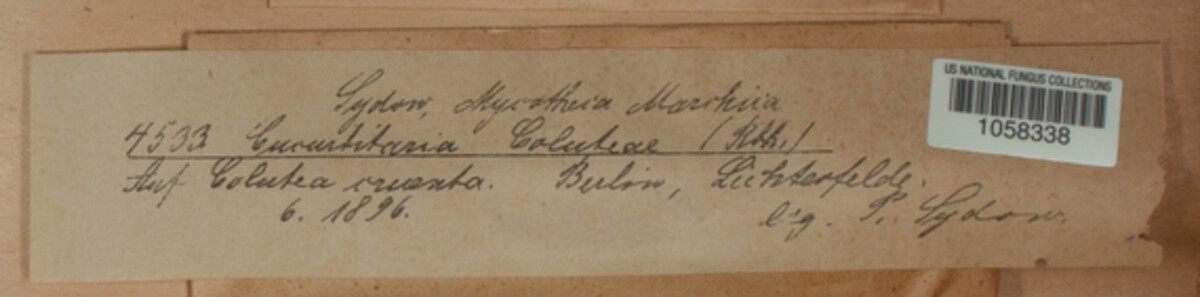 Sydow, Mycotheca Marchica
4533 Cucurbitaria Coluteae (Rbh.)
Auf Colutea cruenta. Berlin, Lichterfelde.
6. 1896.
leg. P. Sydow.
US NATIONAL FUNGUS COLLECTIONS
1058338